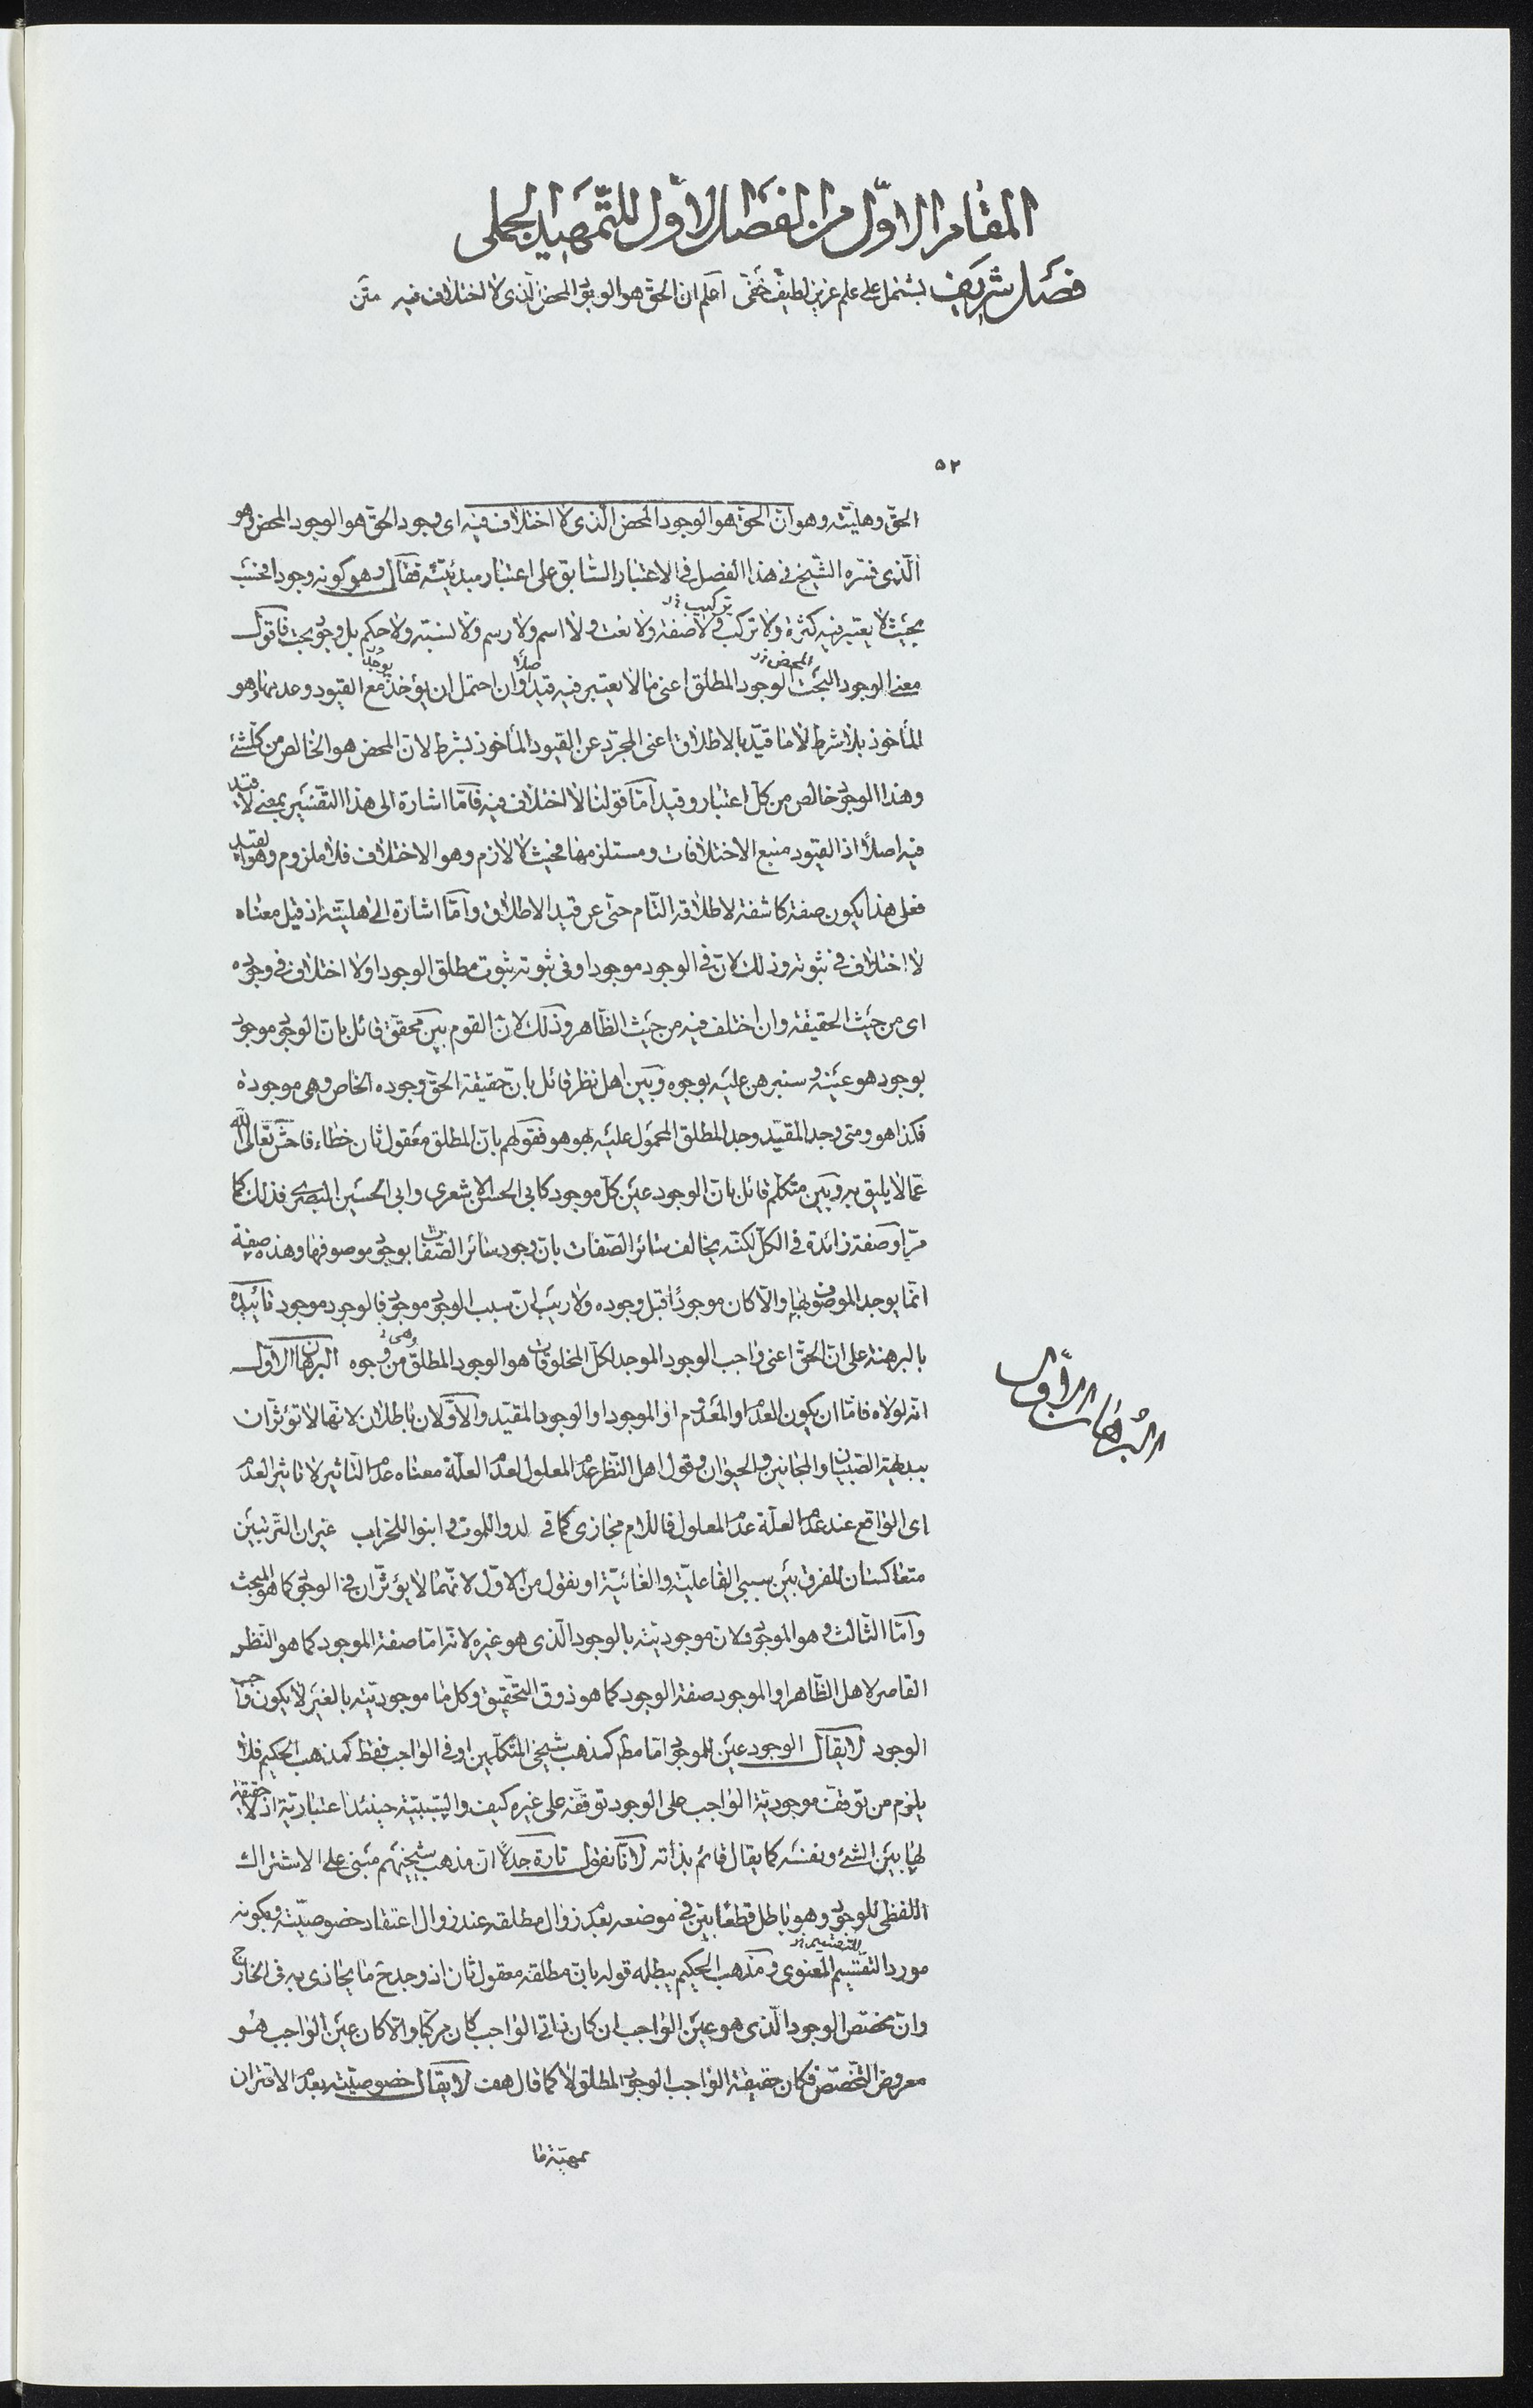 المقام الاوّل من الفصل الاوّل للتّمهيد الجملى
فصل شريف يشتمل على علم عزيز لطيف خفى اعلم ان الحق هو الوجود المحض الذى لا اختلاف فيه متن
٥٢
الحق وهليّته وهو انّ الحق هو الوجود المحض الّذى لا اختلاف فيه اى وجود الحق هو الوجود المحض وهو
الّذى فسّره الشّيخ فى هذا الفصل فى الاعتبار السّابق على اعتبار مبدئيّته فقال وهو كونه وجودا فحسب
بحيث لا يعتبر فيه كثرة ولا تركب ولا صفة ولا نعت ولا اسم ولا رسم ولا نسبة ولا حكم بل وجود بحت فاقول
تركيب خ‌ل
معنى الوجود البحت الوجود المطلق اعنى ما لا يعتبر فيه قيد اصلا وان احتمل ان يؤخذ مع القيود وعدمها وهو
المحض خ‌ل
يوجد خ‌ل
المأخوذ بلا شرط لا ما قيّد بالاطلاق اعنى المجرّد عن القيود المأخوذ بشرط لا لانّ المحض هو الخالص من كلّ شئ
وهذا الوجود خالص من كلّ اعتبار وقيد امّا قولنا لا اختلاف فيه فامّا اشارة الى هذا التّفسير بمعنى لا قيد
فيه اصلاً اذ القيود منبع الاختلافات ومستلزمها فحيث لا لازم وهو الاختلاف فلا ملزوم وهو القيد
فعلى هذا يكون صفة كاشفة لاطلاقه التّام حتّى عن قيد الاطلاق وامّا اشارة الى هليّته اذ قيل معناه
لا اختلاف فى ثبوته وذلك لانّ فى الوجود موجودا وفى ثبوته ثبوت مطلق الوجود اولا اختلاف فى وجوده
اى من حيث الحقيقة وان اختلف فيه من حيث الظّاهر وذلك لانّ القوم بين محقّق قائل بانّ الوجود موجود
بوجود هو عينه وسنبرهن عليه بوجوه وبين اهل نظر قائل بانّ حقيقة الحقّ وجوده الخاص وهى موجودة
فكذا هو ومتى وجد المقيّد وجد المطلق المحمول عليه بهو هو فقولهم بانّ المطلق معقول ثان خطاء فاحش تعالى الله
عمّا لا يليق به وبين متكلّم قائل بانّ الوجود عين كلّ موجود كابى الحسن الاشعرى وابى الحسين البصرى فذلك كما
مرّ او صفة زائدة فى الكلّ لكنّه يخالف سائر الصّفات بانّ وجود سائر الصّفات بوجود موصوفها وهذه صفة
انّما يوجد الموصوف بها والّا كان موجوداً قبل وجوده ولا ريب انّ سبب الوجود موجود فالوجود موجود تأييده
بالبرهنة على انّ الحقّ اعنى واجب الوجود الموجد لكلّ المخلوقات هو الوجود المطلق من وجوه البرهان الاوّل
وهى خ
البرهان الاوّل
انّه لولاه فامّا ان يكون العدم او المعدوم او الموجود او الوجود المقيّد والاوّلان باطلان لانهما لا تؤثّران
ببديهة الصّبيان والمجانين والحيوان وقول اهل النّظر عدم المعلول لعدم العلّة معناه عدم التّأثير لا تأثير العدم
اى الواقع عند عدم العلّة عدم المعلول فاللّام مجازى كما فى لدوا للموت وابنوا للخراب غير ان التّرتيبين
متعاكسان للفرق بين سببى الفاعليّة والغائيّة او نقول من الاوّل لانّهما لا يؤثّران فى الوجود كما هو المبحث
وامّا الثّالث وهو الموجود فلانّ موجوديّته بالوجود الّذى هو غيره لانّه امّا صفة الموجود كما هو النّظر
القاصر لاهل الظّاهر او الموجود صفة الوجود كما هو ذوق التّحقيق وكلّ ما موجوديّته بالغير لا يكون واجب
الوجود لا يقال الوجود عين للموجود امّا مطلقا كمذهب شيخى المتكلّمين او فى الواجب فقط كمذهب الحكيم فلا
يلزم من توقّف موجوديّة الواجب على الوجود توقّفه على غيره كيف والسّببيّة حينئذ اعتباريّة اذ لا حقيقة
لها بين الشئ ونفسه كما يقال قائم بذاته لانّا نقول تارة جدلاً انّ مذهب شيخيهم مبنى على الاشتراك
اللّفظى للوجود وهو باطل قطعاً بيّن فى موضعه بعدم زوال مطلقه عند زوال اعتقاد خصوصيّته وبكونه
مورد التّقسيم المعنوى ومذهب الحكيم يبطله قوله بانّ مطلقه معقول ثان اذ وجد ح ما يحاذى به فى الخارج
التقسيم خ‌ل
وانّ مخصّص الوجود الّذى هو عين الواجب ان كان ذاتى الواجب كان مركّبا والّا كان عين الواجب هو
معروض التّخصّص فكان حقيقة الواجب الوجود المطلق لا كما قال هف لا يقال خصوصيّته بعدم الاقتران
بمهيّة ما